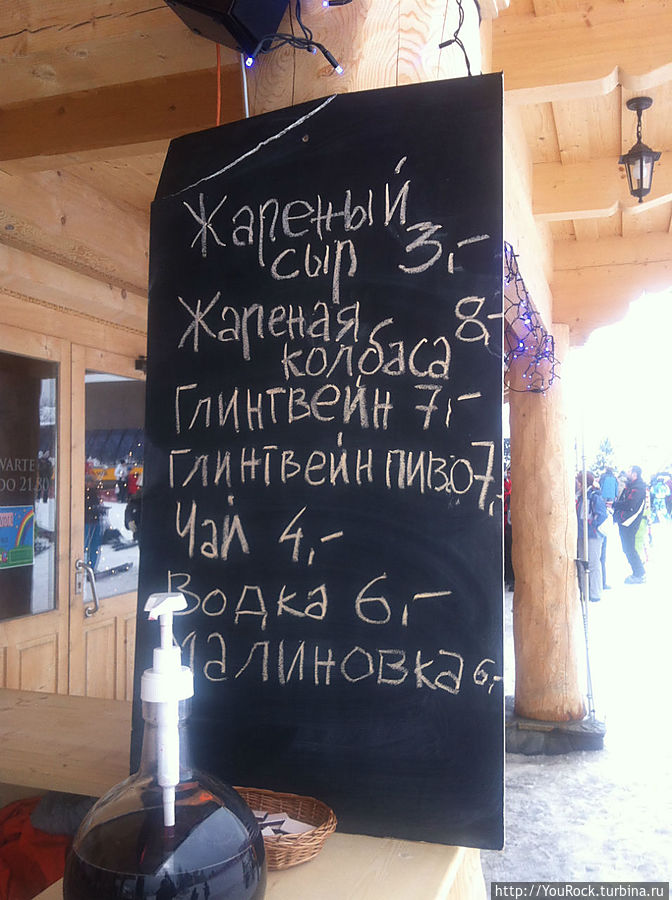 Жареный
сыр 3,-
Жареная 8,-
колбаса
Глинтвейн 7,-
Глинтвейн пиво 7,-
Чай 4,-
Водка 6,-
Малиновка 6,-
WARTE
DO 21.80
http://YouRock.turbina.ru